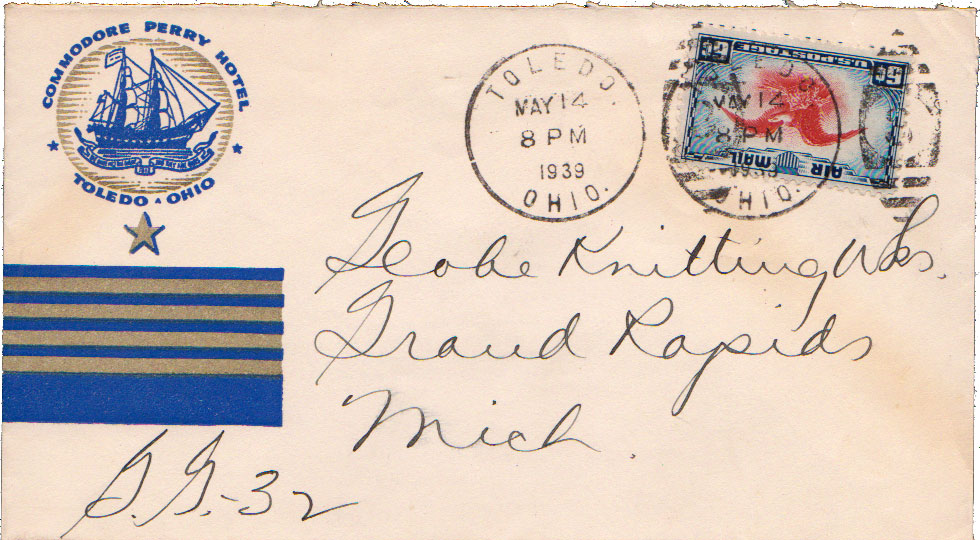 COMMODORE PERRY HOTEL
TOLEDO • OHIO
TOLEDO.
MAY 14
8 PM
1939
OHIO.
TOLEDO
MAY 14
8 PM
1939
OHIO.
U.S. POSTAGE
6¢ 6¢
AIR
MAIL
Globe Knitting Wks.
Grand Rapids
Mich.
G.G.-32